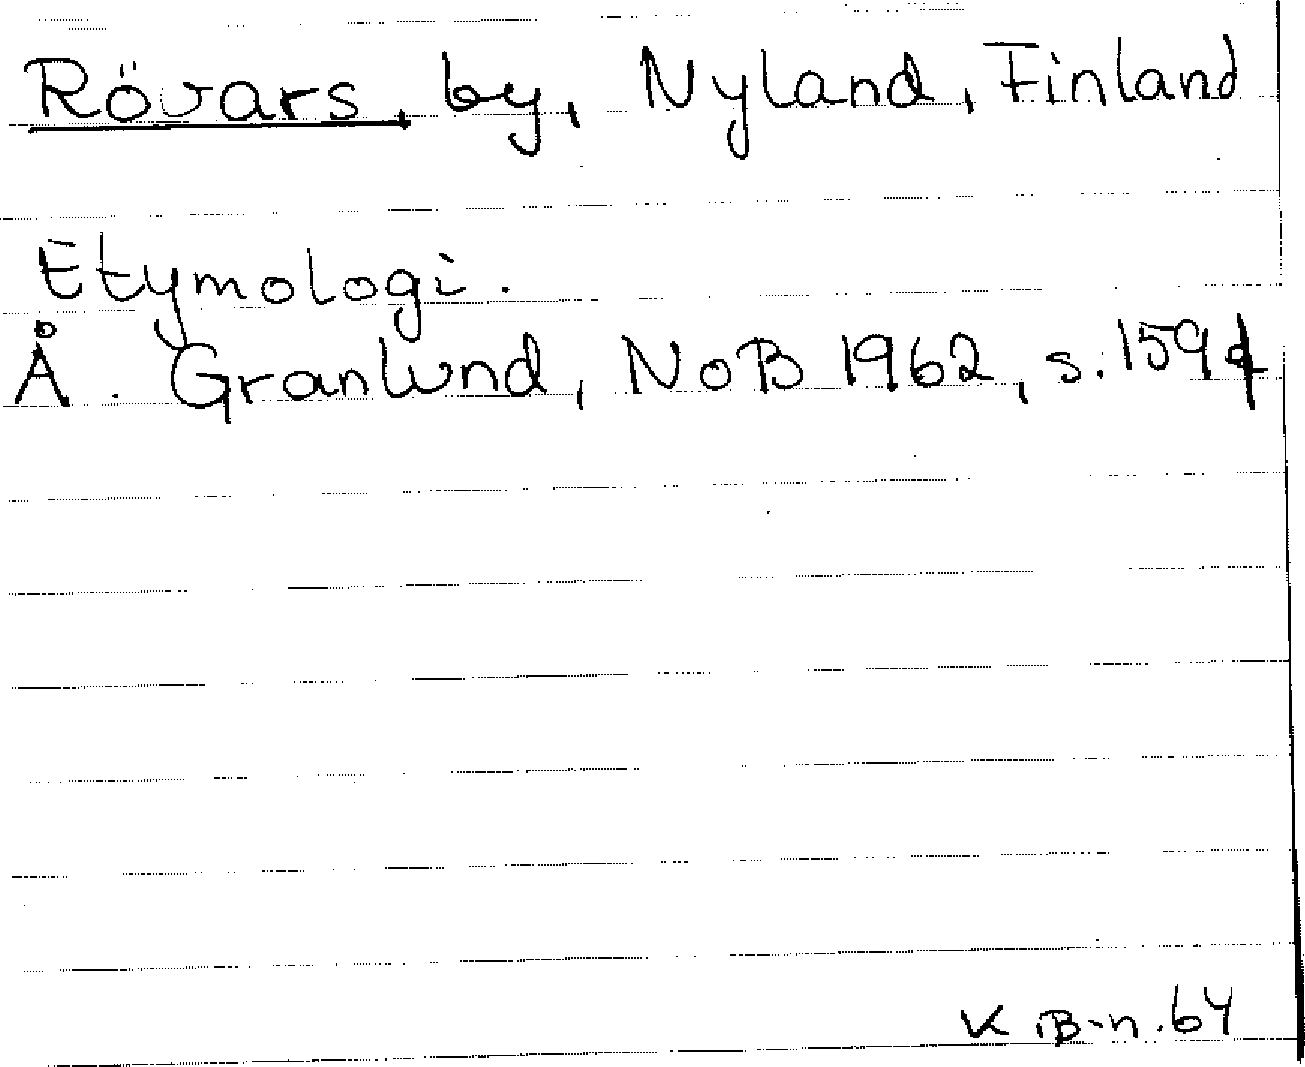 Rövars, by, Nyland, Finland
Etymologi.
Å. Granlund, NoB 1962, s. 159f
K B-n. 64